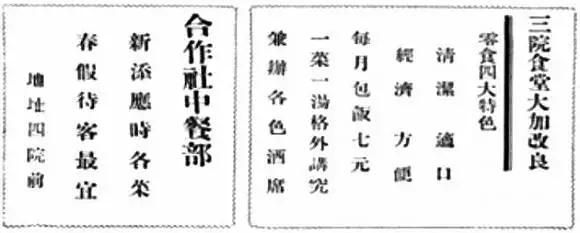 三院食堂大加改良
零食四大特色
清潔 適口
經濟 方便
每月包飯七元
一菜一湯格外講究
兼辦各色酒席
合作社中餐部
新添應時各菜
春假待客最宜
地址四院前